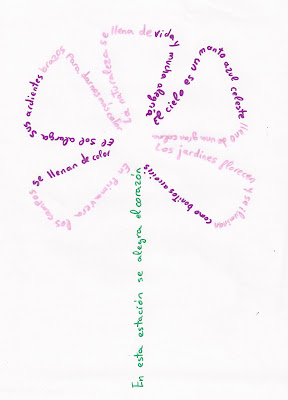 En primavera los campos se llenan de color
El sol alarga sus ardientes brazos para darnos más calor
La naturaleza se llena de vida y mucha alegría
El cielo es un manto azul celeste lleno de una gran
Los jardines florecen y se iluminan como bonitos arcoiris
En esta estación se alegra el corazón